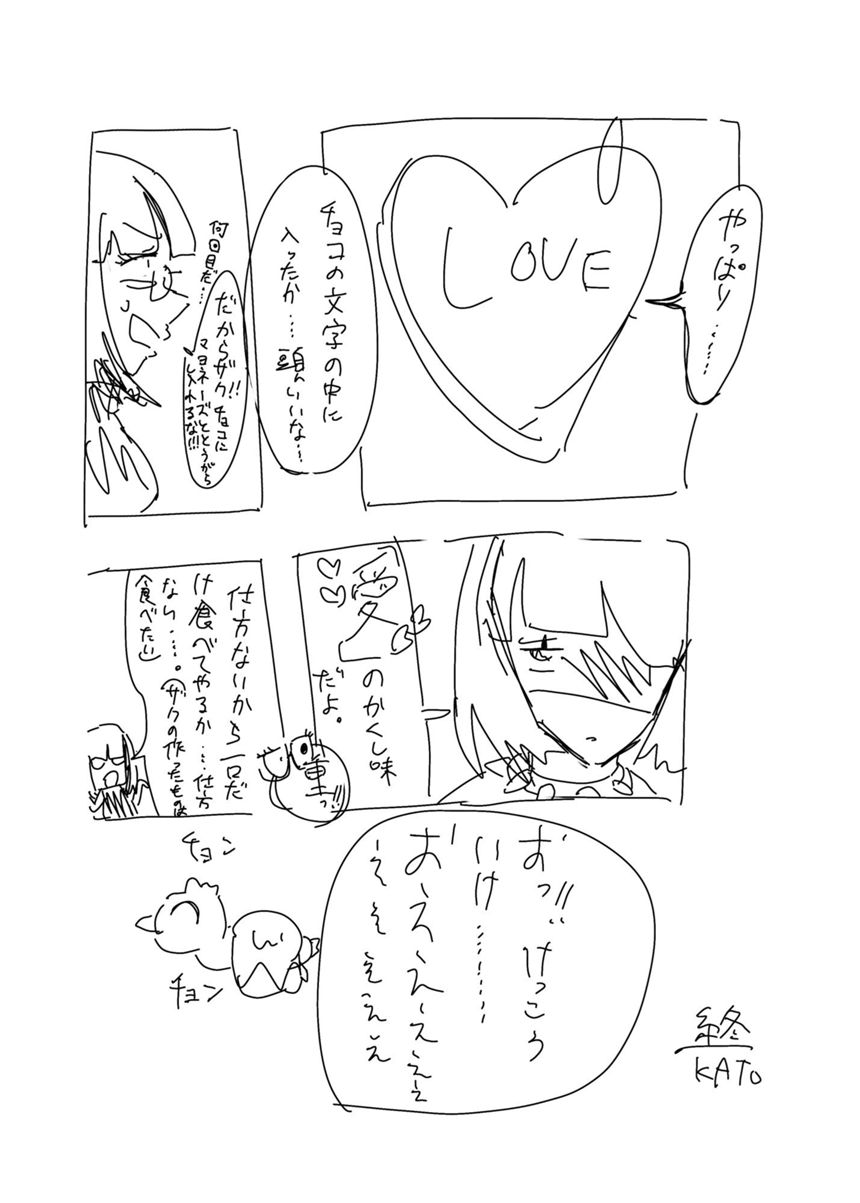 やっぱり……
LOVE
チョコの文字の中に
入ったか…頭いいな…
何回目だ…
だからザク!!チョコに
マヨネーズととうがら
し入れるな!!!
愛のかくし味
だよ。
重っ!!
仕方ないから一口だ
け食べてやるか…仕方
なく…。(ザクの作ったものは
食べたい)
おっ!!けっこう
いけ………
おえええええ
ええええええ
チョン
チョン
終
KATO